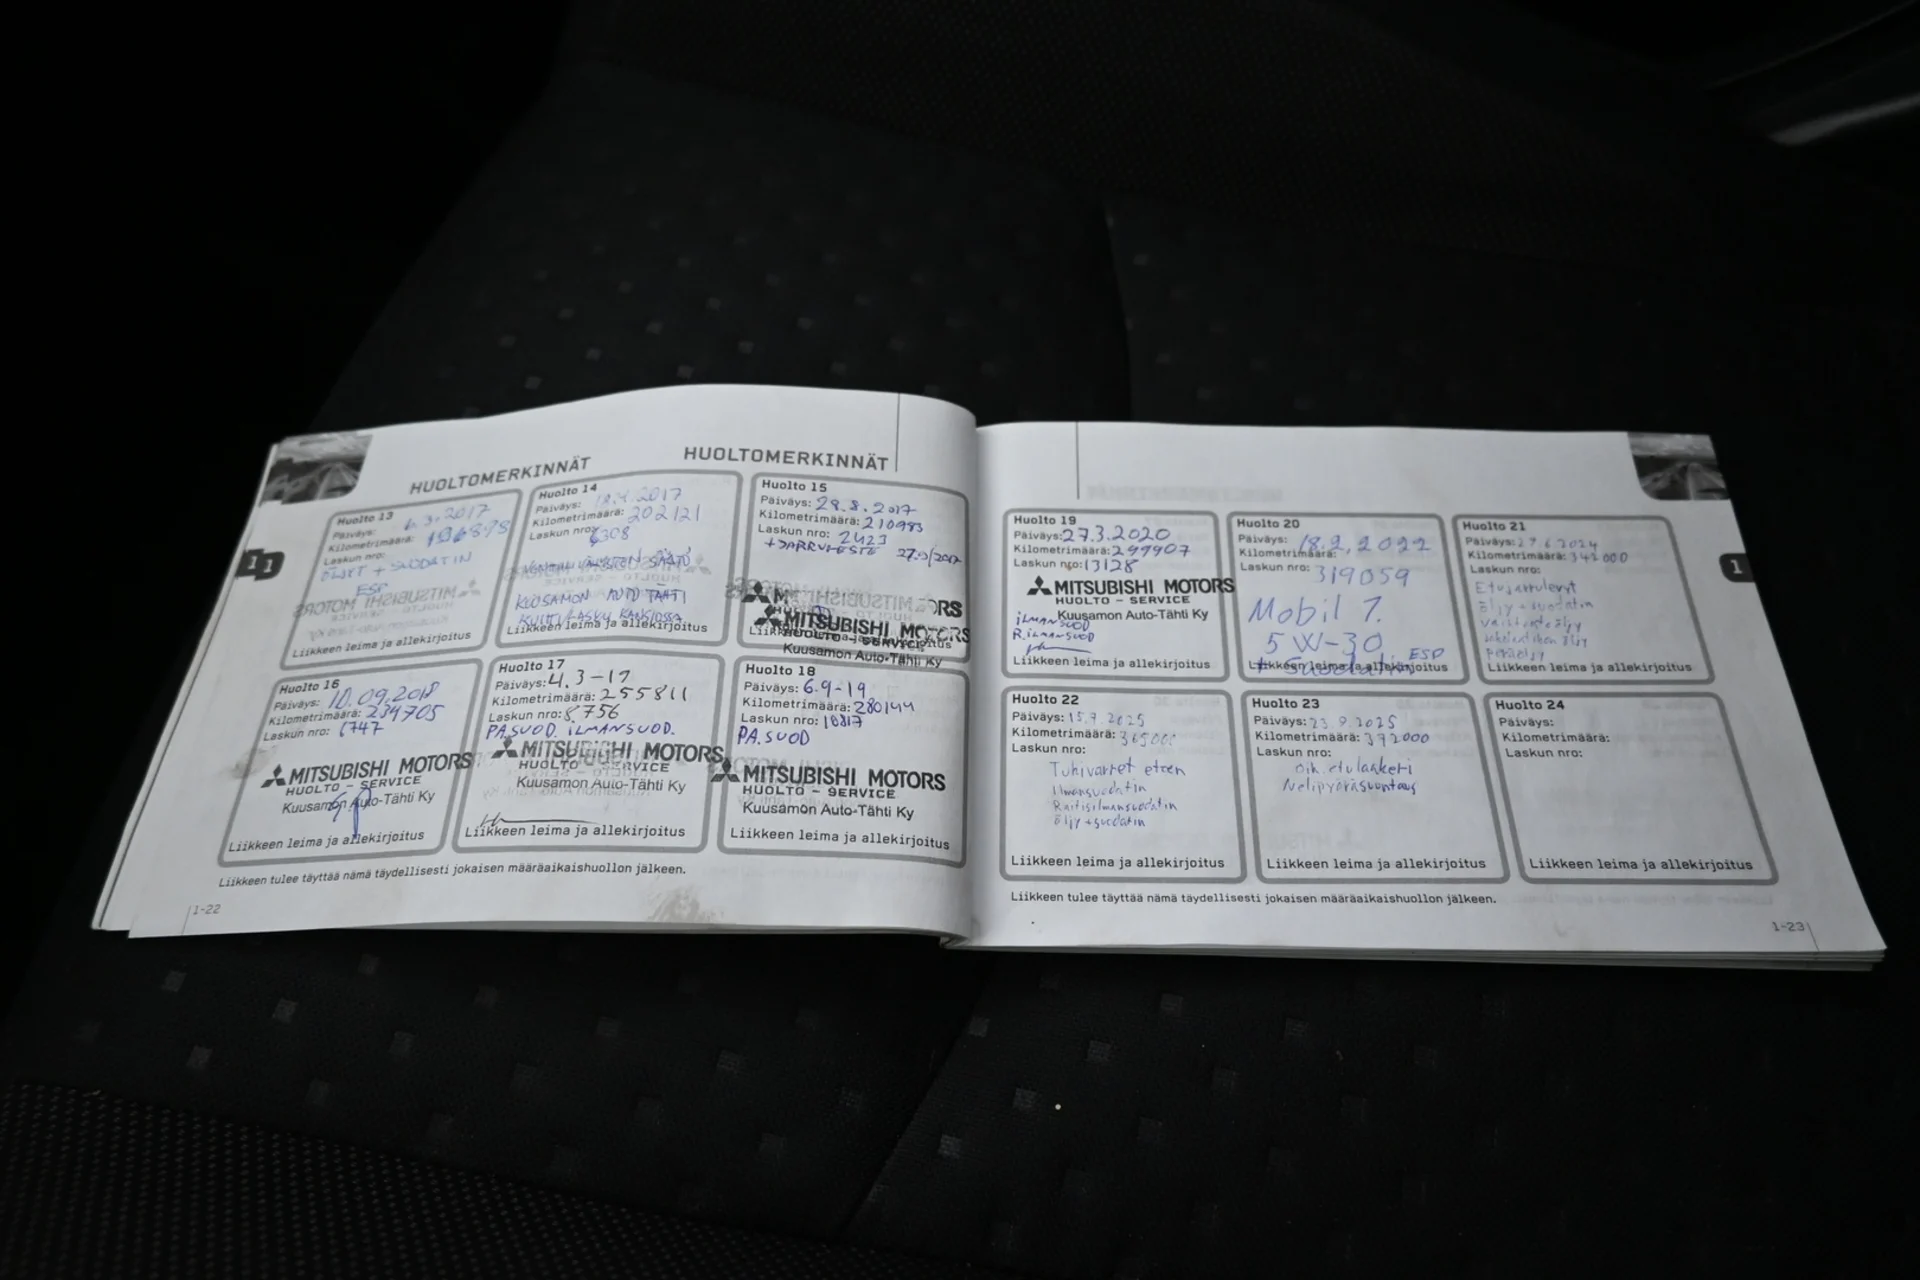 HUOLTOMERKINNÄT
HUOLTOMERKINNÄT
Huolto 13
Päiväys: 6.3.2017
Kilometrimäärä: 196898
Laskun nro:
ÖLJYT + SUODATIN
ESP
Liikkeen leima ja allekirjoitus
Huolto 14
Päiväys: 2017
Kilometrimäärä: 202121
Laskun nro: 6308
SÄÄTÖ
KUUSAMON AUTO TÄHTI
KUITTI/LASKU KANSIOSSA
Liikkeen leima ja allekirjoitus
Huolto 15
Päiväys: 28.8.2017
Kilometrimäärä: 210983
Laskun nro: 2423
+JARRUNESTE
MITSUBISHI MOTORS
HUOLTO - SERVICE
Kuusamon Auto-Tähti Ky
Huolto 16
Päiväys: 10.09.2018
Kilometrimäärä: 234705
Laskun nro: 6747
MITSUBISHI MOTORS
HUOLTO - SERVICE
Kuusamon Auto-Tähti Ky
Liikkeen leima ja allekirjoitus
Huolto 17
Päiväys: 4.3-19
Kilometrimäärä: 255811
Laskun nro: 8756
PA.SUOD. ILMANSUOD.
MITSUBISHI MOTORS
HUOLTO - SERVICE
Kuusamon Auto-Tähti Ky
Liikkeen leima ja allekirjoitus
Huolto 18
Päiväys: 6.9-19
Kilometrimäärä: 280144
Laskun nro: 10817
PA.SUOD
MITSUBISHI MOTORS
HUOLTO - SERVICE
Kuusamon Auto-Tähti Ky
Liikkeen leima ja allekirjoitus
Liikkeen tulee täyttää nämä täydellisesti jokaisen määräaikaishuollon jälkeen.
1-22
1
Huolto 19
Päiväys: 27.3.2020
Kilometrimäärä: 299907
Laskun nro: 13128
MITSUBISHI MOTORS
HUOLTO - SERVICE
Kuusamon Auto-Tähti Ky
ILMANSUOD
R.ILMANSUOD
Liikkeen leima ja allekirjoitus
Huolto 20
Päiväys: 18.2.2022
Kilometrimäärä:
Laskun nro: 319059
Mobil 1.
5W-30 ESP
+ Suodatin
Liikkeen leima ja allekirjoitus
Huolto 21
Päiväys: 27.6.2024
Kilometrimäärä: 342000
Laskun nro:
Etujarrulevyt
öljy + suodatin
öljy
peräöljy
Liikkeen leima ja allekirjoitus
Huolto 22
Päiväys: 15.7.2025
Kilometrimäärä: 365000
Laskun nro:
Tukivarret eteen
Ilmansuodatin
Raitisilmansuodatin
öljy + suodatin
Liikkeen leima ja allekirjoitus
Huolto 23
Päiväys: 23.9.2025
Kilometrimäärä: 372000
Laskun nro:
Oik. etulaakeri
Nelipyöräsuuntaus
Liikkeen leima ja allekirjoitus
Huolto 24
Päiväys:
Kilometrimäärä:
Laskun nro:
Liikkeen leima ja allekirjoitus
Liikkeen tulee täyttää nämä täydellisesti jokaisen määräaikaishuollon jälkeen.
1-23
1